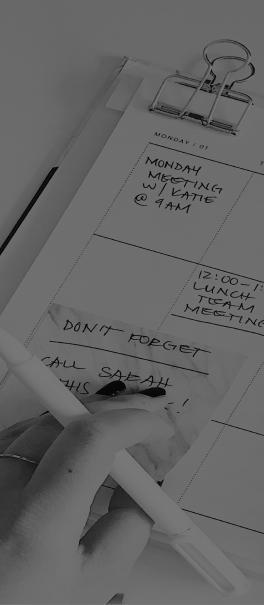 MONDAY / 01
MONDAY
MEETING
W/ KATIE
@ 9AM
12:00-1
LUNCH
TEAM
MEETING
DON'T FORGET
CALL SARAH
THIS !